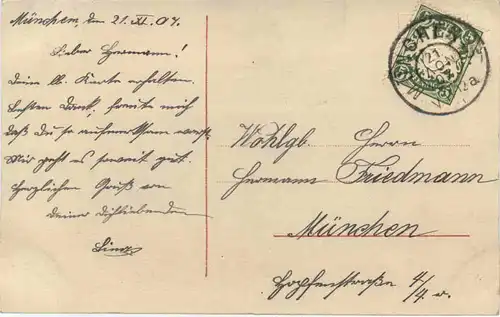 München, den 21. XI. 07.
Lieber Hermann!
Deine lb. Karte erhalten.
Besten Dank, freute mich
daß Du so aufmerksam warst.
Mir geht es soweit gut.
Herzlichen Gruß von
Deiner Dichliebenden
MÜNCHEN
21.
NOV
Wohlgb. Herrn
Hermann Friedmann
München
Hopfenstraße 4/
4